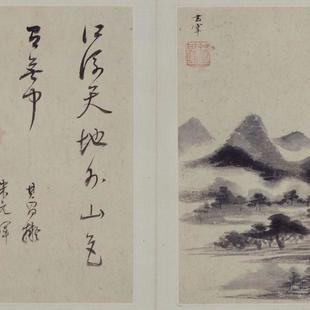 玄宰
江流天地外山色
有無中
其昌擬
米元暉